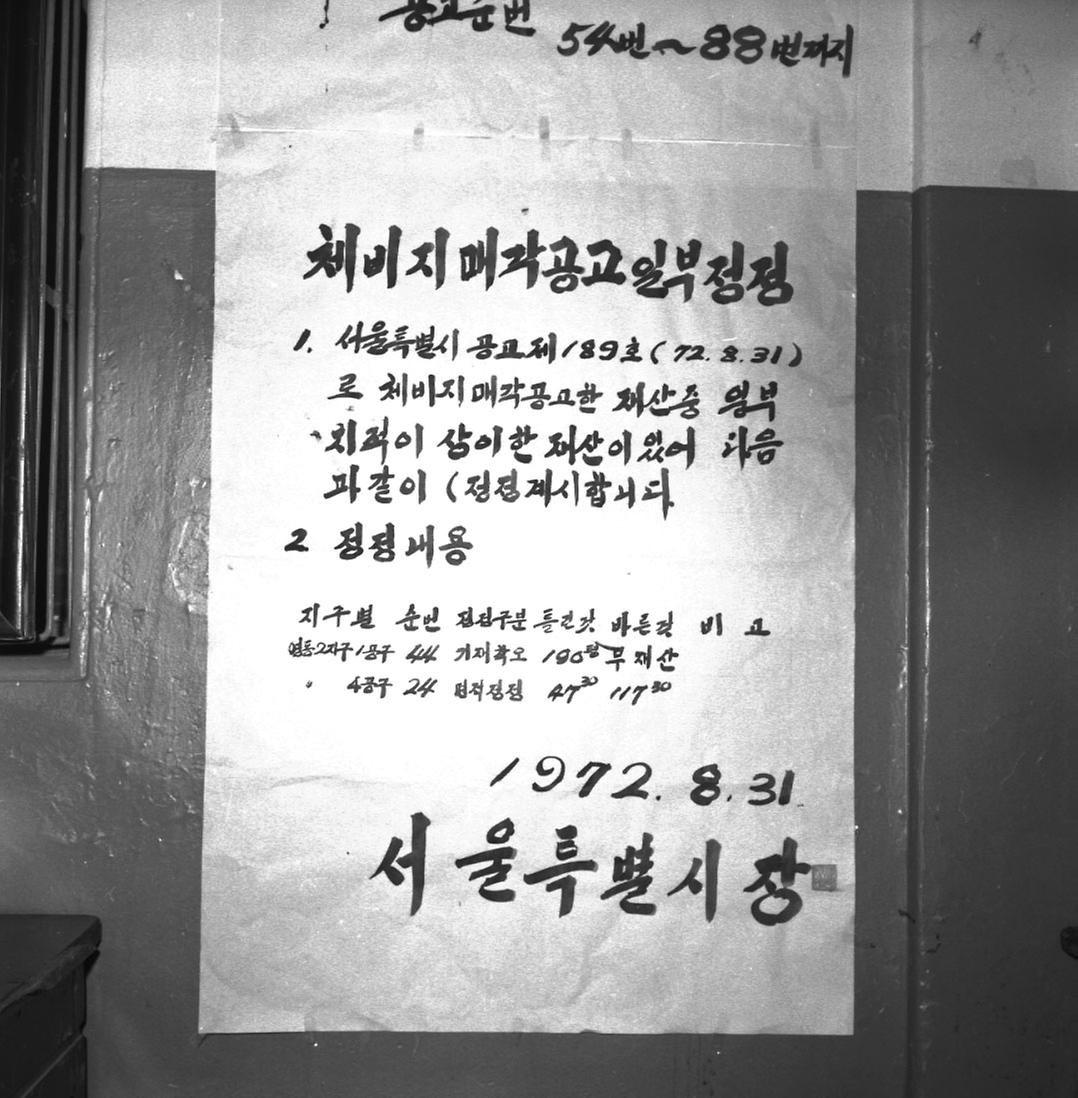 공고순번
54번~88번까지
체비지매각공고일부정정
1. 서울특별시 공고제189호(72.8.31)
로 체비지매각공고한 재산중 일부
지적이 상이한 재산이 있어 다음
과같이 (정정게시합니다
2 정정내용
지구별 순번 정정구분 틀린것 바른것 비고
영동2지구1공구 44 기재착오 190평 무재산
〃 4공구 24 면적정정 47.30 117.30
1972. 8. 31.
서울특별시장